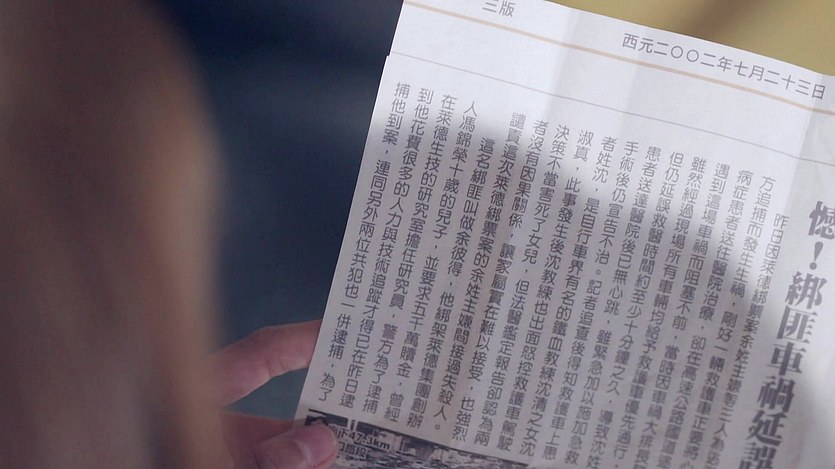 三版
西元二〇〇二年七月二十三日
憾！綁匪車禍延誤
昨日因萊德綁票案余姓主嫌等三人為逃
方追捕而發生車禍，剛好一輛救護車正要將
病症患者送往醫院治療，卻在高速公路國道
遇到這場車禍而阻塞不前，當時因車禍大排長
雖然經過現場所有車輛均給予救護車優先通行
但仍延誤救醫時間約至少十分鐘之久，導致沈姓
患者送達醫院後已無心跳，雖緊急加以施加急救
手術後仍宣告不治。記者追查後得知救護車上患
者姓沈，是自行車界有名的鐵血教練沈清之女沈
淑真，此事發生後沈教練也出面怒控救護車駕駛
決策不當害死了女兒，但法醫鑑定報告卻認為兩
者沒有因果關係，讓家屬實在難以接受，也強烈
譴責這次萊德綁票案的余姓主嫌間接過失殺人。
這名綁匪叫做余彼得，他綁架萊德集團創辦
人馮錦榮十歲的兒子，並要求五千萬贖金，曾經
在萊德生技的研究室擔任研究員，警方為了逮捕
到他花費很多的人力與技術追蹤才得已在昨日逮
捕他到案，連同另外兩位共犯也一併逮捕，為了
47.3km